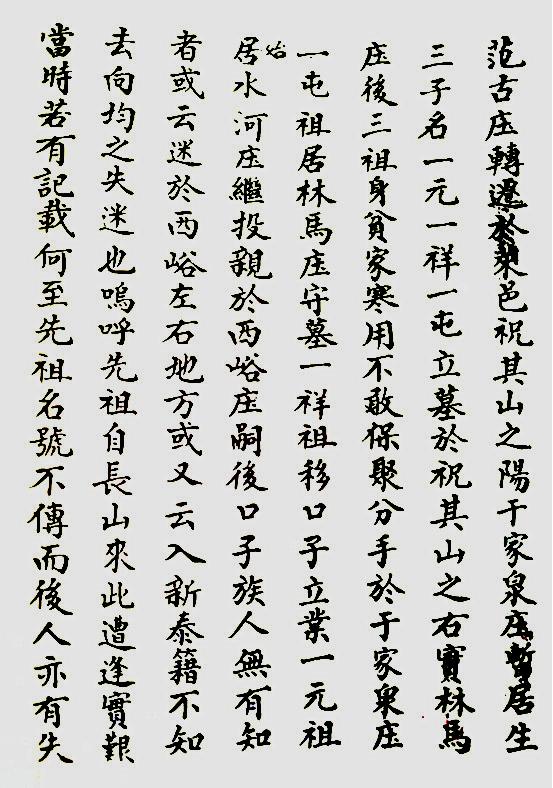 范古庄轉遷於萊邑祝其山之陽于家泉庄暫居生
三子名一元一祥一屯立墓於祝其山之右寶林馬
庄後三祖身貧家寒用不敢保聚分手於于家泉庄
一屯祖居林馬庄守墓一祥祖移口子立業一元祖
始居水河庄繼投親於西峪庄嗣後口子族人無有知
者或云迷於西峪左右地方或又云入新泰籍不知
去向均之失迷也嗚呼先祖自長山來此遭逢實艱
當時若有記載何至先祖名號不傳而後人亦有失